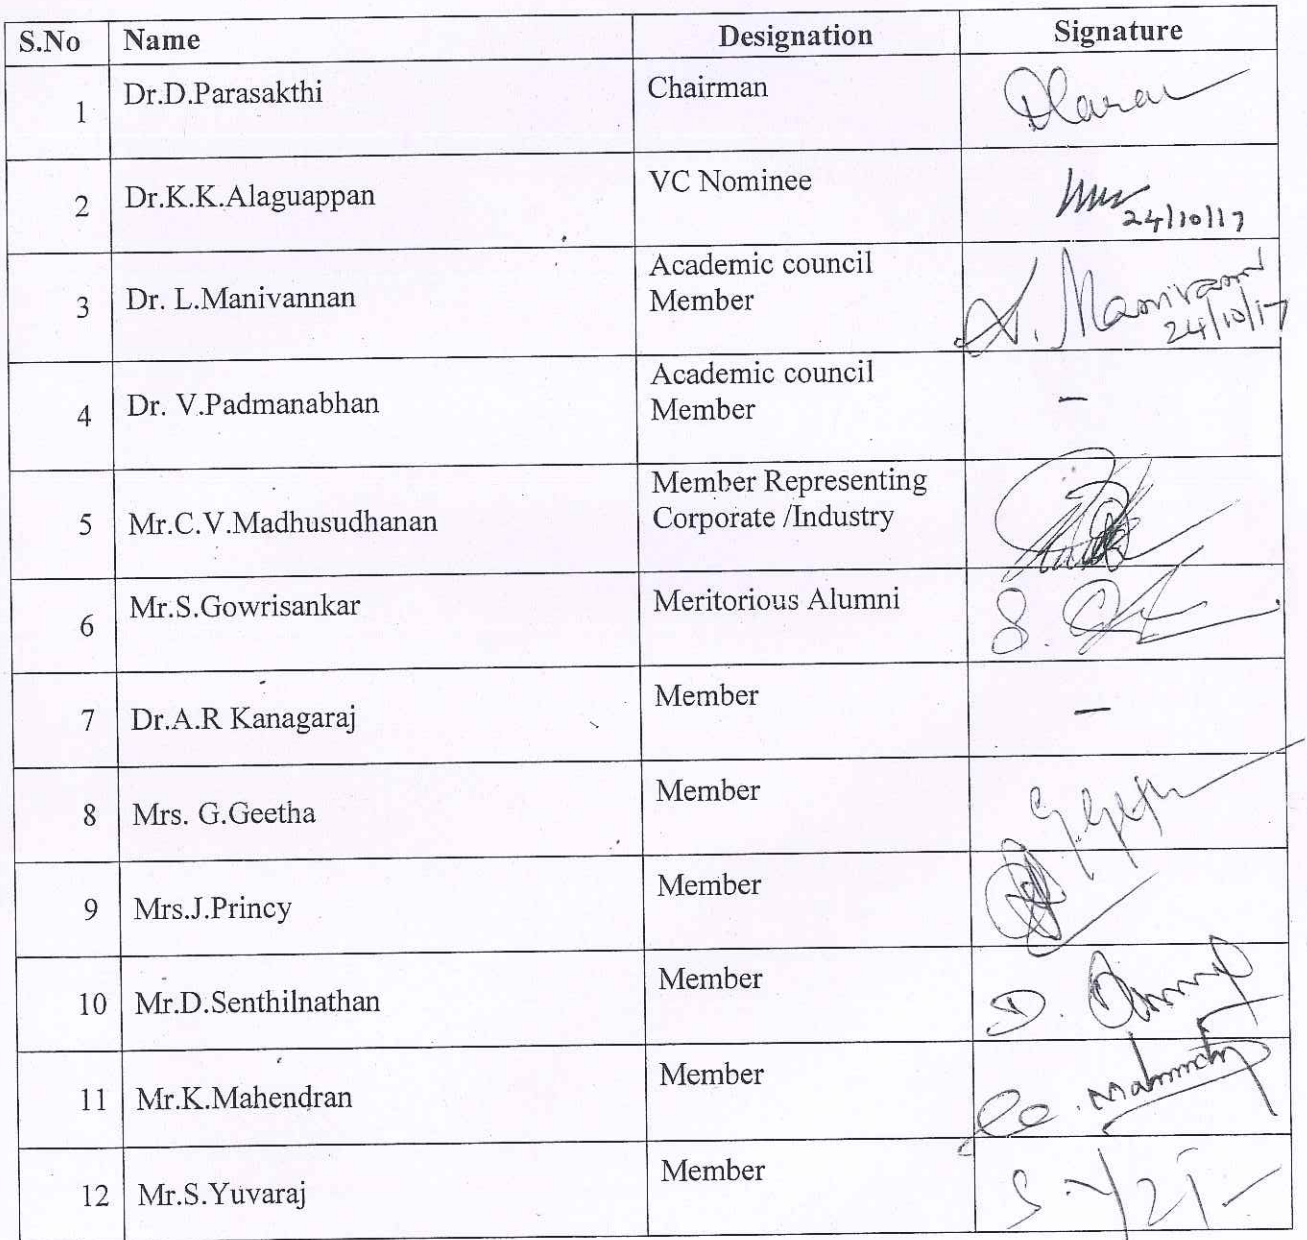 S.No Name Designation Signature
1 Dr.D.Parasakthi Chairman
2 Dr.K.K.Alaguappan VC Nominee
24/10/17
3 Dr. L.Manivannan Academic council
Member
24/10/17
4 Dr. V.Padmanabhan Academic council
Member –
5 Mr.C.V.Madhusudhanan Member Representing
Corporate /Industry
6 Mr.S.Gowrisankar Meritorious Alumni
7 Dr.A.R Kanagaraj Member –
8 Mrs. G.Geetha Member
9 Mrs.J.Princy Member
10 Mr.D.Senthilnathan Member
11 Mr.K.Mahendran Member
12 Mr.S.Yuvaraj Member